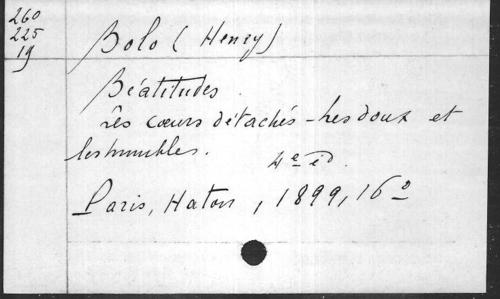 260
225
19
Bolo (Henry)
Béatitudes.
Les cœurs détachés - Les doux et
les humbles.
4e éd.
Paris, Haton, 1899, 16o